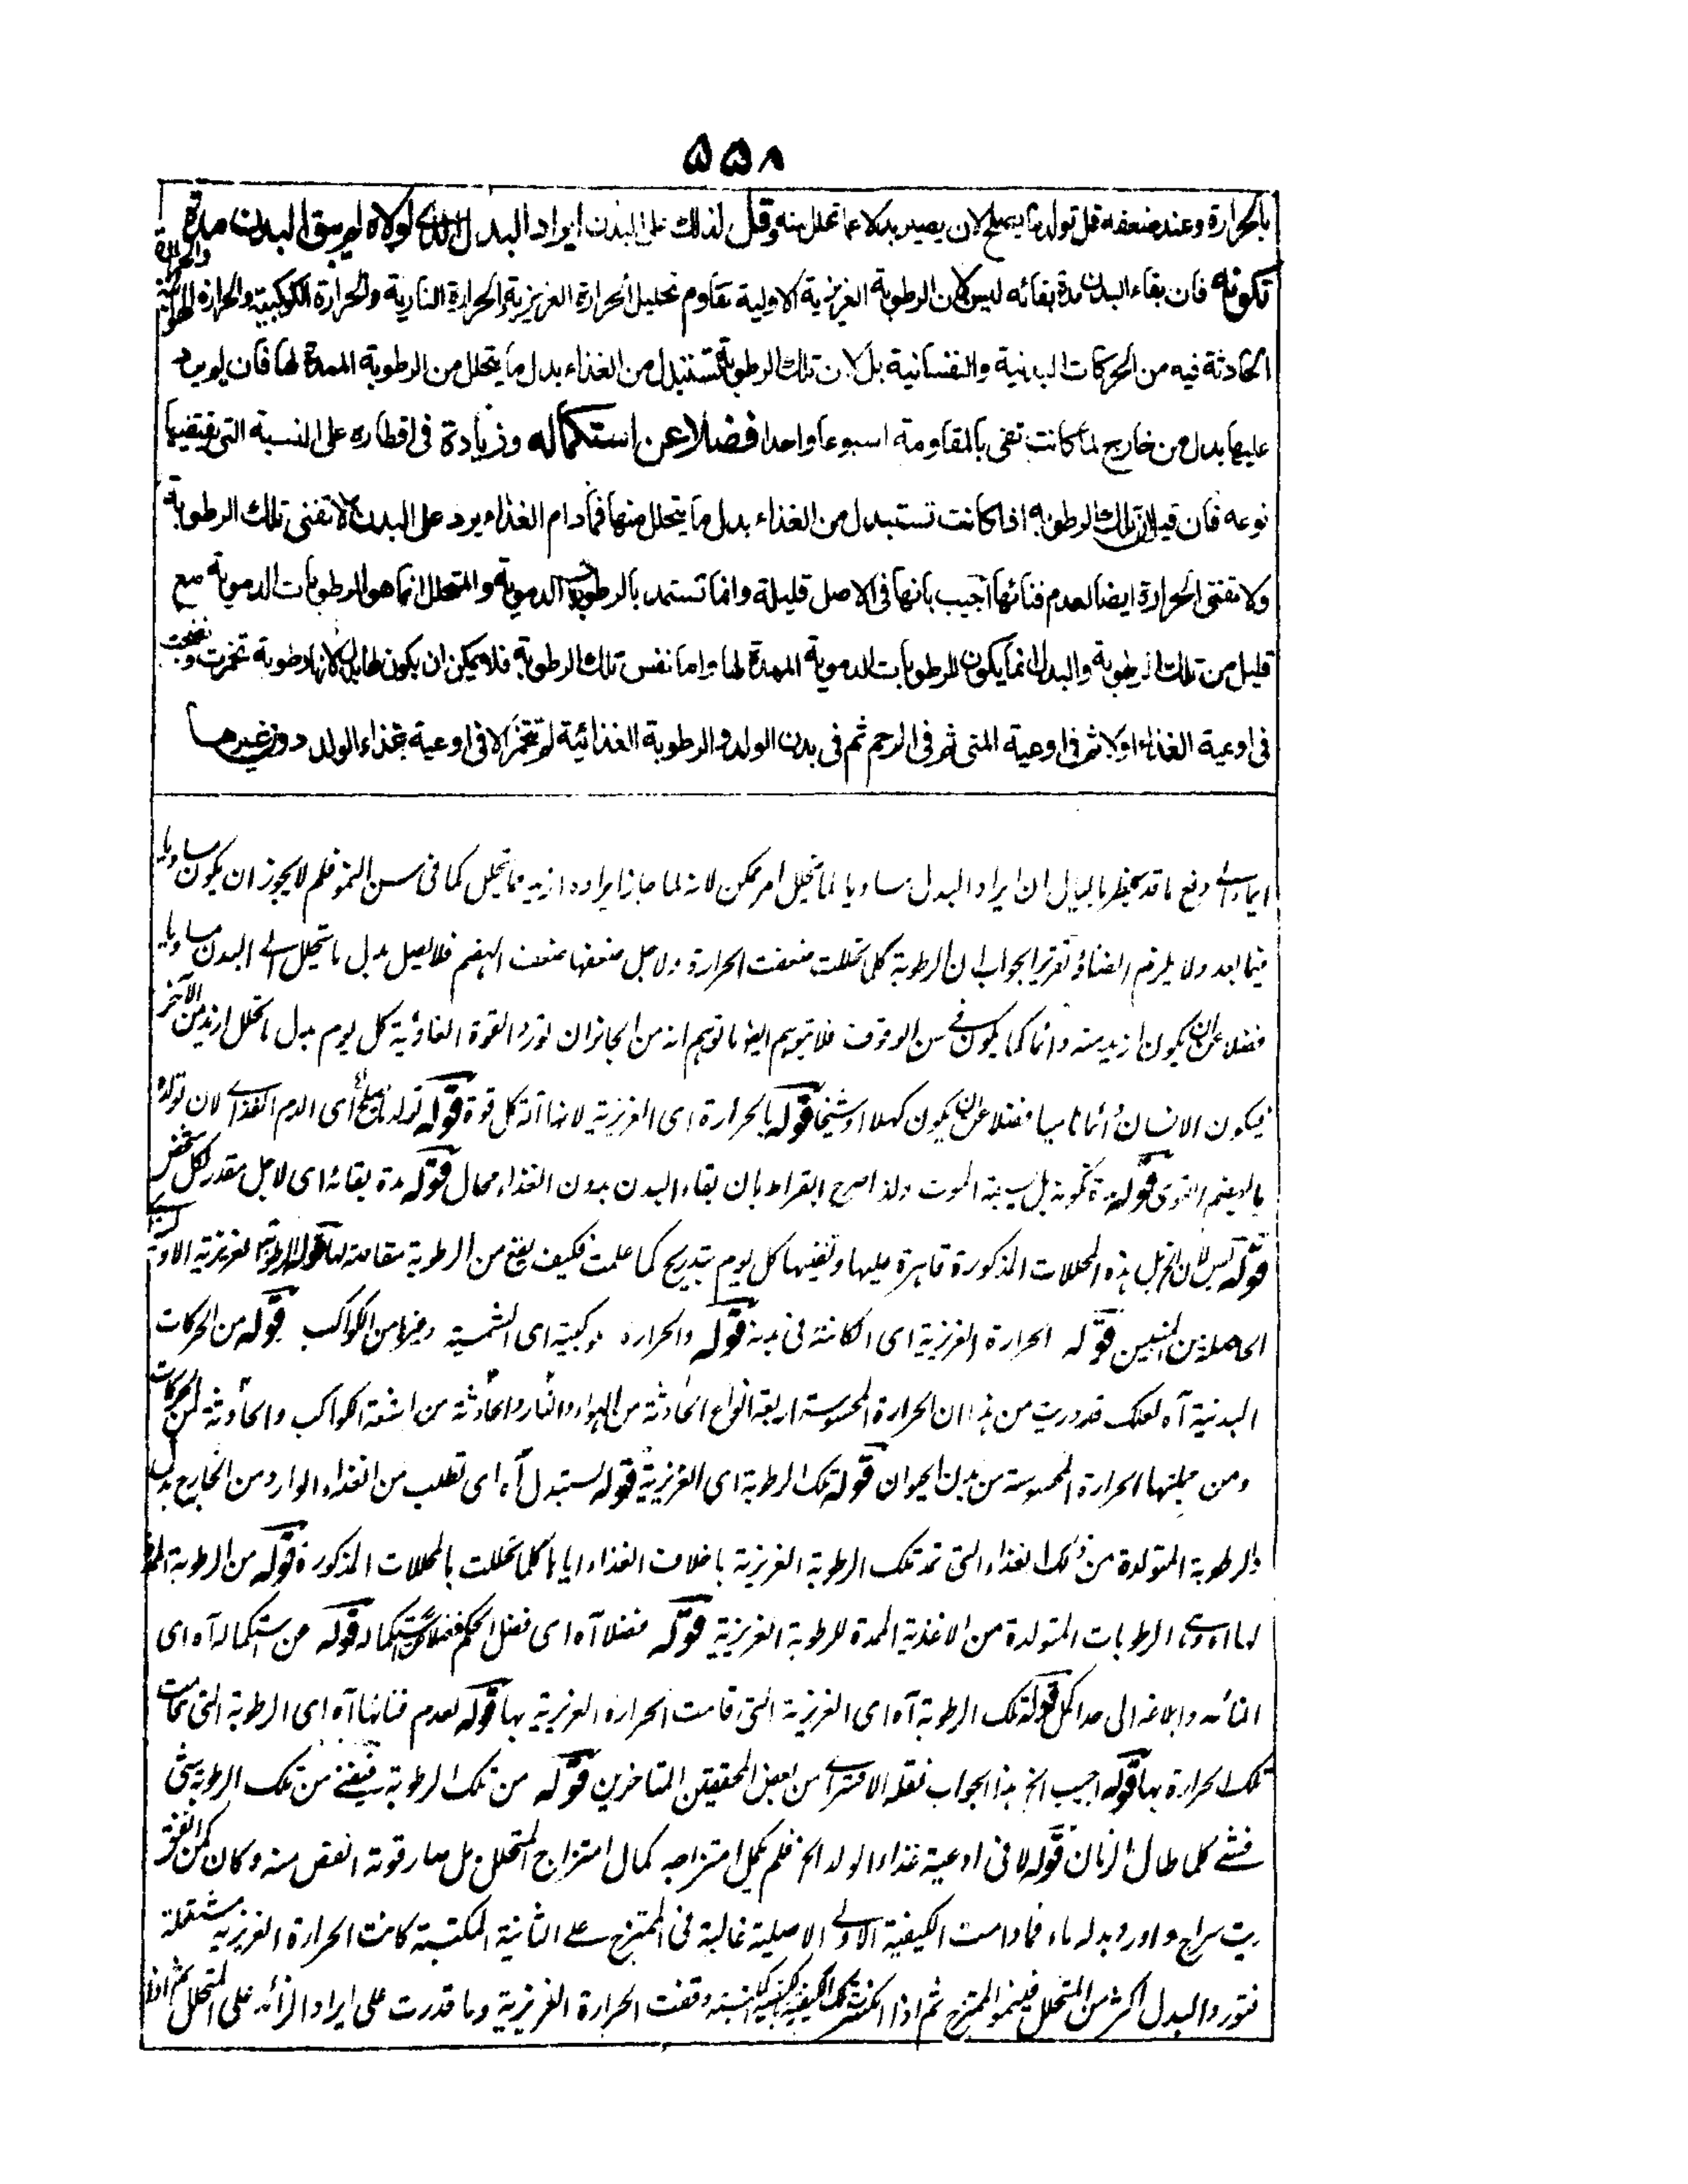 ۵۵۸
بالحرارة وعند ضعفه قل تولد ما يصلح لان يصير بدلا عما تحلل منه وقل لذلك على البدن ايراد البدل الذى لولاه لم يبق البدن مدة
تكونه فان بقاء البدن مدة بقائه ليس لان الرطوبة الغريزية الاولية تقاوم تحليل الحرارة الغريزية والحرارة النارية والحرارة الكوكبية والحرارة الهوائية والحرارة
الحادثة فيه من الحركات البدنية والنفسانية بل لان تلك الرطوبة تستبدل من الغذاء بدل ما يتحلل من الرطوبة الممدة لها فان لو يرد
عليها بدل من خارج لما كانت تفى بالمقاومة اسبوعا واحدا فضلا عن استكماله وزيادة فى اقطاره على النسبة التى يقتضيها
نوعه فان قيل ان تلك الرطوبة اذا كانت تستبدل من الغذاء بدل ما يتحلل منها فما دام الغذاء يرد على البدن لا تفنى تلك الرطوبة
ولا تفنى الحرارة ايضا لعدم فنائها اجيب بانها فى الاصل قليلة وانما تستمد بالرطوبة الدموية والمتحلل انما هو الرطوبات الدموية مع
قليل من تلك الرطوبة والبدل انما يكون للرطوبات الدموية الممدة لها واما نفس تلك الرطوبة فلا يمكن ان يكون لها بدل لانها رطوبة تخمرت ونضجت
فى اوعية الغذاء اولا ثم فى اوعية المنى ثم فى الرحم ثم فى بدن الولد والرطوبة الغذائية لم تتخمر الا فى اوعية غذاء الولد دون غيرها
ايماء الى دفع ما قد يخطر بالبال ان ايراد البدل مساويا لما تحلل امر ممكن لانه لما جاز ايراده ازيد مما تحلل كما فى سن النمو فلم لا يجوز ان يكون مساويا
فيما بعد ولا يلزم الفناء وتقرير الجواب ان الرطوبة كل تحللت ضعفت الحرارة ولاجل ضعفها ضعف الهضم فلا يصل بدل ما يتحلل الى البدن مساويا
فضلا عن ان يكون ازيد منه دائما كما يكون فى سن الوقوف فلا يتوهم ايضا ما توهم انه من الجائز ان تورد القوة الغاذية كل يوم بدل ما تحلل ازيد من الآخر
فيكون الانسان دائما ناميا فضلا عن ان يكون كهلا او شيخا قوله بالحرارة اى الغريزية لانها آلة كل قوة قوله تولد ما يصلح اى الدم الغذائى لان تولده
بالهضم القوى قوله مدة تكونه بل يسبقه الموت ولذا صرح ابقراط بان بقاء البدن بدون الغذاء محال قوله مدة بقائه اى لاجل مقدر لكل شخص
قوله ليس لان الخ بل هذه المحللات المذكورة قاهرة عليها وتفنيها كل يوم بتدريج كما علمت فكيف يقع من الرطوبة مقاومة لها قوله الرطوبة الغريزية الاولية
الحاصلة من المنيين قوله الحرارة الغريزية اى الكائنة فى بدنه قوله والحرارة الكوكبية اى الشمسية وغيرها من الكواكب قوله من الحركات
البدنية آه لعلك قد دريت من هذا ان الحرارة المحسوسة اربعة انواع الحادثة من الهواء والنار والحادثة من اشعة الكواكب والحادثة من الحركات
ومن جملتها الحرارة المحسوسة من بدن الحيوان قوله تلك الرطوبة اى الغريزية قوله تستبدل آه اى تطلب من الغذاء الوارد من الخارج بدل
الرطوبة المتولدة من ذلك الغذاء التى تمد تلك الرطوبة الغريزية باخلاف الغذاء اياها كلما تحللت بالمحللات المذكورة قوله من الرطوبة الممدة
لها اه وهى الرطوبات المتولدة من الاغذية الممدة للرطوبة الغريزية قوله فضلا آه اى فضل الحكم فضلا عن استكماله قوله من استكماله آه اى
انمائه وابلاغه الى حد اكمل قوله تلك الرطوبة آه اى الغريزية التى قامت الحرارة الغريزية بها قوله لعدم فنائها آه اى الرطوبة التى قامت
تلك الحرارة بها قوله اجيب الخ هذا الجواب نقله الاقسرائى من بعض المحققين المتاخرين قوله من تلك الرطوبة فيفنى من تلك الرطوبة شئ
فشئ كلما طال الزمان قوله الا فى اوعية غذاء الولد الخ فلم يكمل امتزاجه كمال امتزاج المتحلل بل صار قوته انقص منه وكان كمن انفق
زيت سراج واورد بدله ماء فما دامت الكيفية الاولى الاصلية غالبة فى الممتزج على الثانية المكتسبة كانت الحرارة الغريزية مشتعلة
فتورد البدل اكثر من المتحلل فينمو الممتزج ثم اذا وقفت الحرارة الغريزية وما قدرت على ايراد الزائد على المتحلل ثم اذا